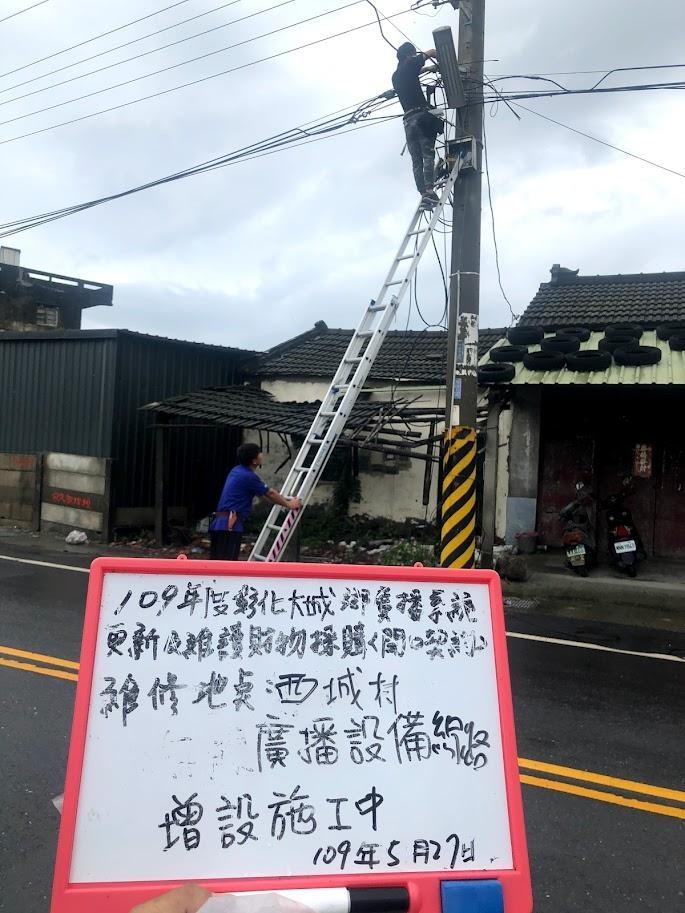 109年度彰化大城鄉廣播系統
更新及維護財物採購(開口契約)
維修地點:西城村
廣播設備線路
增設施工中
109年5月27日